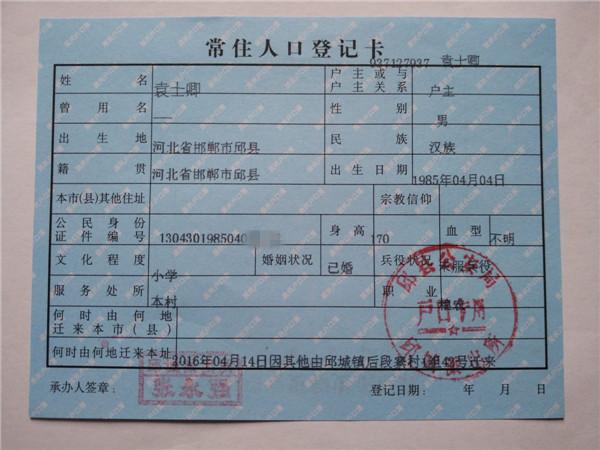 常住人口登记卡
037127037 袁士卿
姓名 袁士卿 户主或与户主关系 户主
曾用名 — 性别 男
出生地 河北省邯郸市邱县 民族 汉族
籍贯 河北省邯郸市邱县 出生日期 1985年04月04日
本市(县)其他住址 宗教信仰
公民身份证件编号 1304301985040 身高 170 血型 不明
文化程度 小学 婚姻状况 已婚 兵役状况 未服兵役
服务处所 本村 职业
何时由何地迁来本市(县)
何时由何地迁来本址 2016年04月14日因其他由邱城镇后段寨村
号迁来
承办人签章: 登记日期: 年 月 日
邱县公安局
户口专用